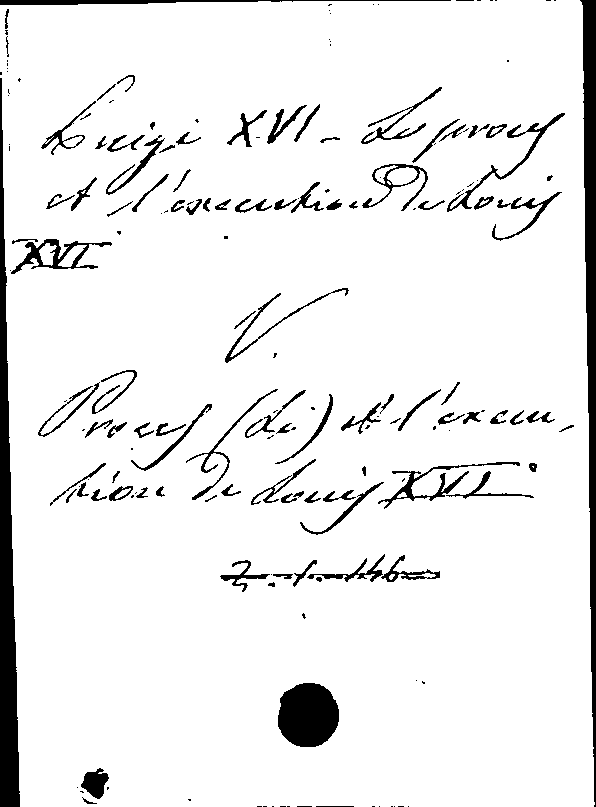 Luigi XVI - Le procès
et l'execution de Louis
XVI
V.
Procès (Le) et l'execu-
tion de Louis XVI
2.1.146